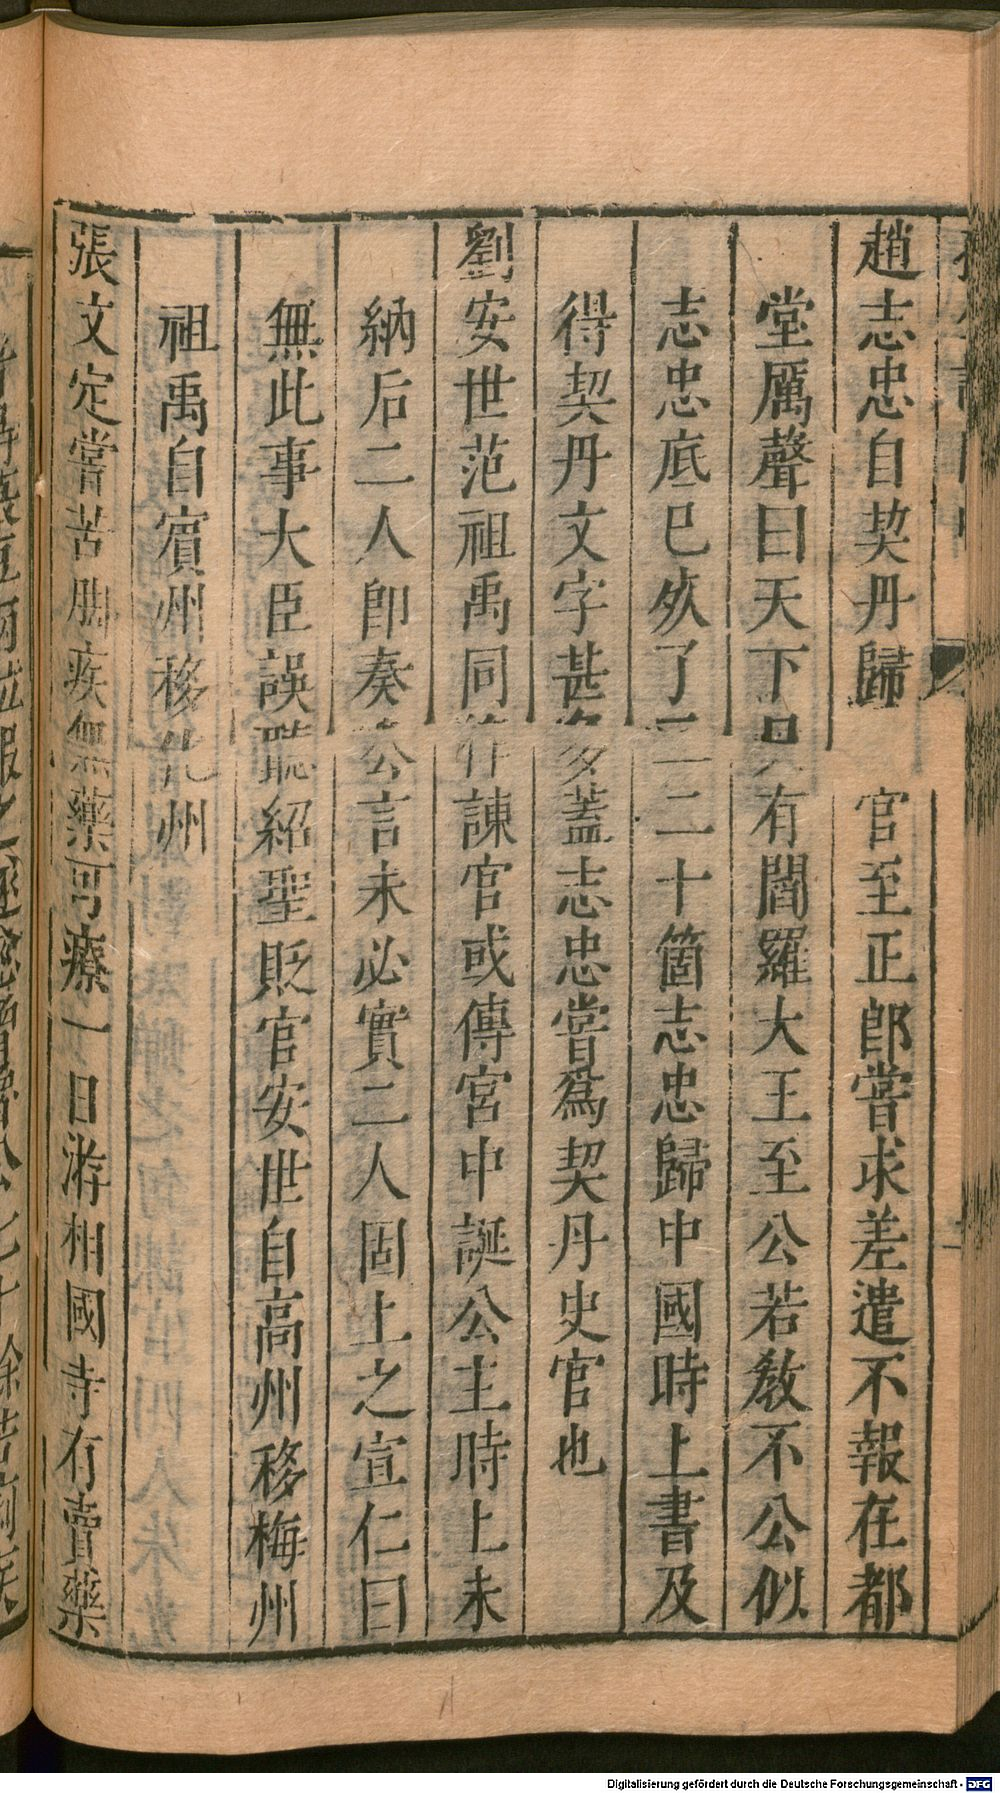 趙志忠自契丹歸　官至正郎嘗求差遣不報在都
堂厲聲曰天下只有閻羅大王至公若教不公似
志忠底已死了一二十箇志忠歸中國時上書及
得契丹文字甚多蓋志忠嘗爲契丹史官也
劉安世范祖禹同作諫官或傳宮中誕公主時上未
納后二人卽奏公言未必實二人固上之宣仁曰
無此事大臣誤聽紹聖貶官安世自高州移梅州
祖禹自賓州移化州
張文定嘗苦脚疾無藥可療一日游相國寺有賣藥
Digitalisierung gefördert durch die Deutsche Forschungsgemeinschaft - DFG